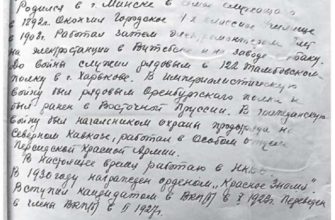 Родился в г. Минске в семье служащего в
1892г. Окончил Городское 4х классное училище
в 1908г. Работал затем электромонтером
на электростанции в Витебске и на заводе
войны служил рядовым в 122 Тамбовском
полку в г. Харькове. В империалистическую
войну был рядовым Оренбургского полка и
был ранен в Восточной Пруссии. В гражданскую
войну был начальником охраны продпоезда на
Северном Кавказе, работал в Особом отделе
Персидской Красной Армии.
В настоящее время работаю в НКВД
В 1930 году награжден орденом „Красное Знамя".
Вступил кандидатом в ВКП(б) в 1923г. Переведен
в члены ВКП(б) в 1927г.